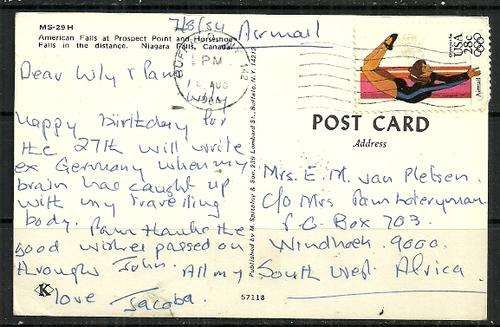 MS-29 H
American Falls at Prospect Point and Horseshoe
Falls in the distance. Niagara Falls, Canada.
7/8/84 Airmail
PM
AUG
1984
142
Olympics 84
USA
28c
Airmail
Dear Wily & Pam
Happy birthday for
the 27th will write
ex Germany when my
brain has caught up
with my travelling
body. Pam thanks the
good wishes passed on
through John. All my
love Jacoba.
K
Published by M. Spitalnik & Son 259 Lombard St., Buffalo, N.Y. 14212
57118
POST CARD
Address
Mrs. E. M. van Pletsen.
c/o Mrs Pam
P.O. Box 703.
Windhoek. 9000.
South West Africa